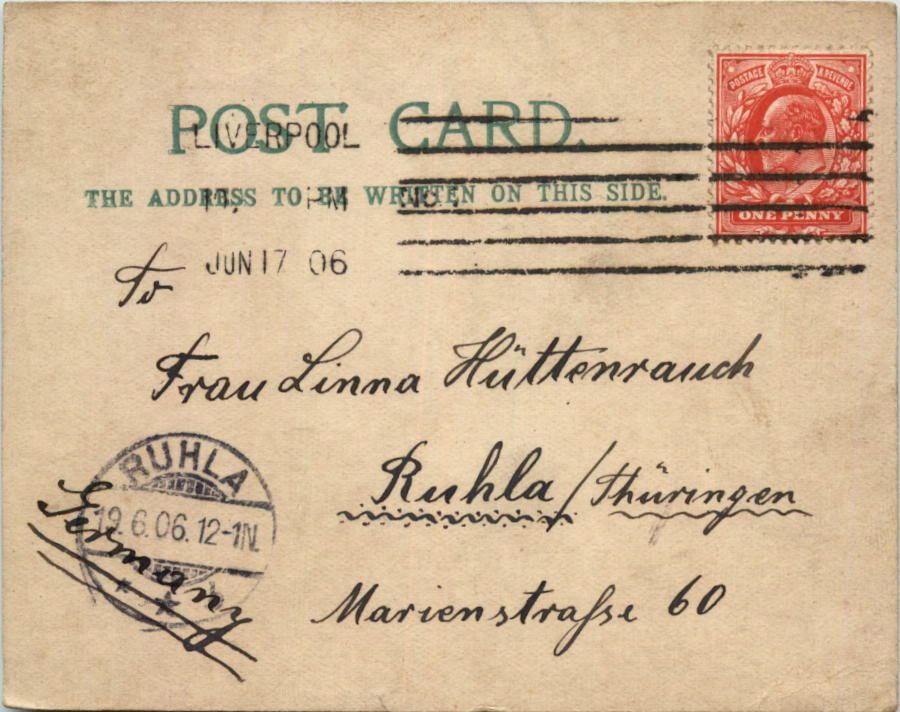 POST CARD.
LIVERPOOL
THE ADDRESS TO BE WRITTEN ON THIS SIDE.
PM
JUN 17 06
POSTAGE & REVENUE
ONE PENNY
To
Frau Linna Hüttenrauch
Ruhla / Thüringen
Marienstraſse 60
Germany
RUHLA
19.6.06.12-1N.